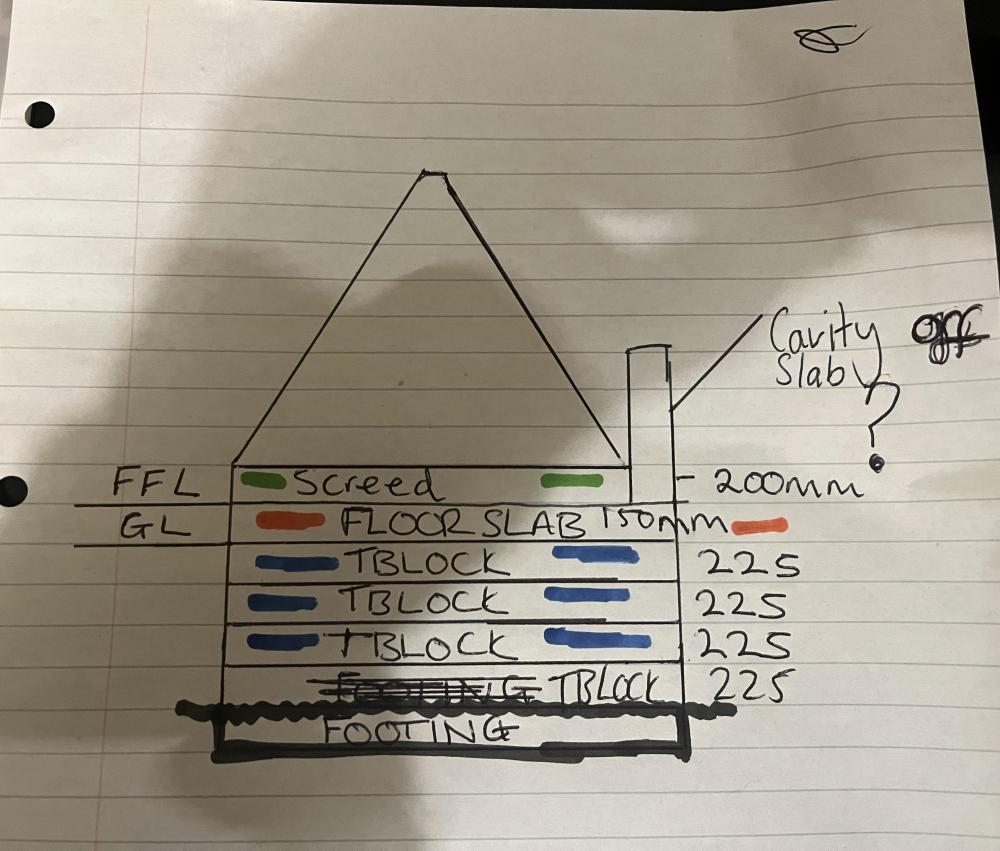 Cavity off
Slab
?
FFL Screed 200mm
GL FLOOR SLAB 150mm
TBLOCK 225
TBLOCK 225
TBLOCK 225
FOOTING TBLOCK 225
FOOTING